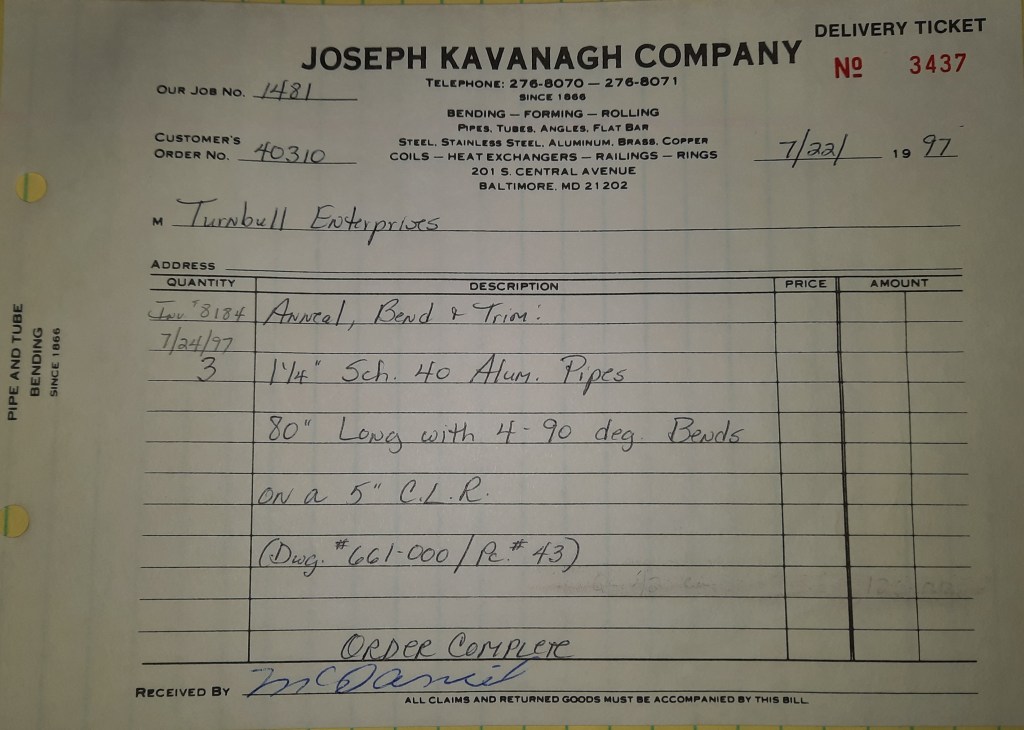 DELIVERY TICKET
JOSEPH KAVANAGH COMPANY
Nº 3437
TELEPHONE: 276-8070 — 276-8071
SINCE 1866
OUR JOB NO. 1481
BENDING — FORMING — ROLLING
PIPES, TUBES, ANGLES, FLAT BAR
STEEL, STAINLESS STEEL, ALUMINUM, BRASS, COPPER
COILS — HEAT EXCHANGERS — RAILINGS — RINGS
201 S. CENTRAL AVENUE
BALTIMORE, MD 21202
CUSTOMER'S
ORDER NO. 40310
7/22/ 19 97
M Turnbull Enterprises
ADDRESS
QUANTITY DESCRIPTION PRICE AMOUNT
Inv #8184 Anneal, Bend & Trim:
7/24/97
3 1 1/4" Sch. 40 Alum. Pipes
80" Long with 4-90 deg. Bends
on a 5" C.L.R.
(Dwg. #661-000 / Pc. # 43)
ORDER COMPLETE
RECEIVED BY McDaniel
ALL CLAIMS AND RETURNED GOODS MUST BE ACCOMPANIED BY THIS BILL
PIPE AND TUBE
BENDING
SINCE 1866